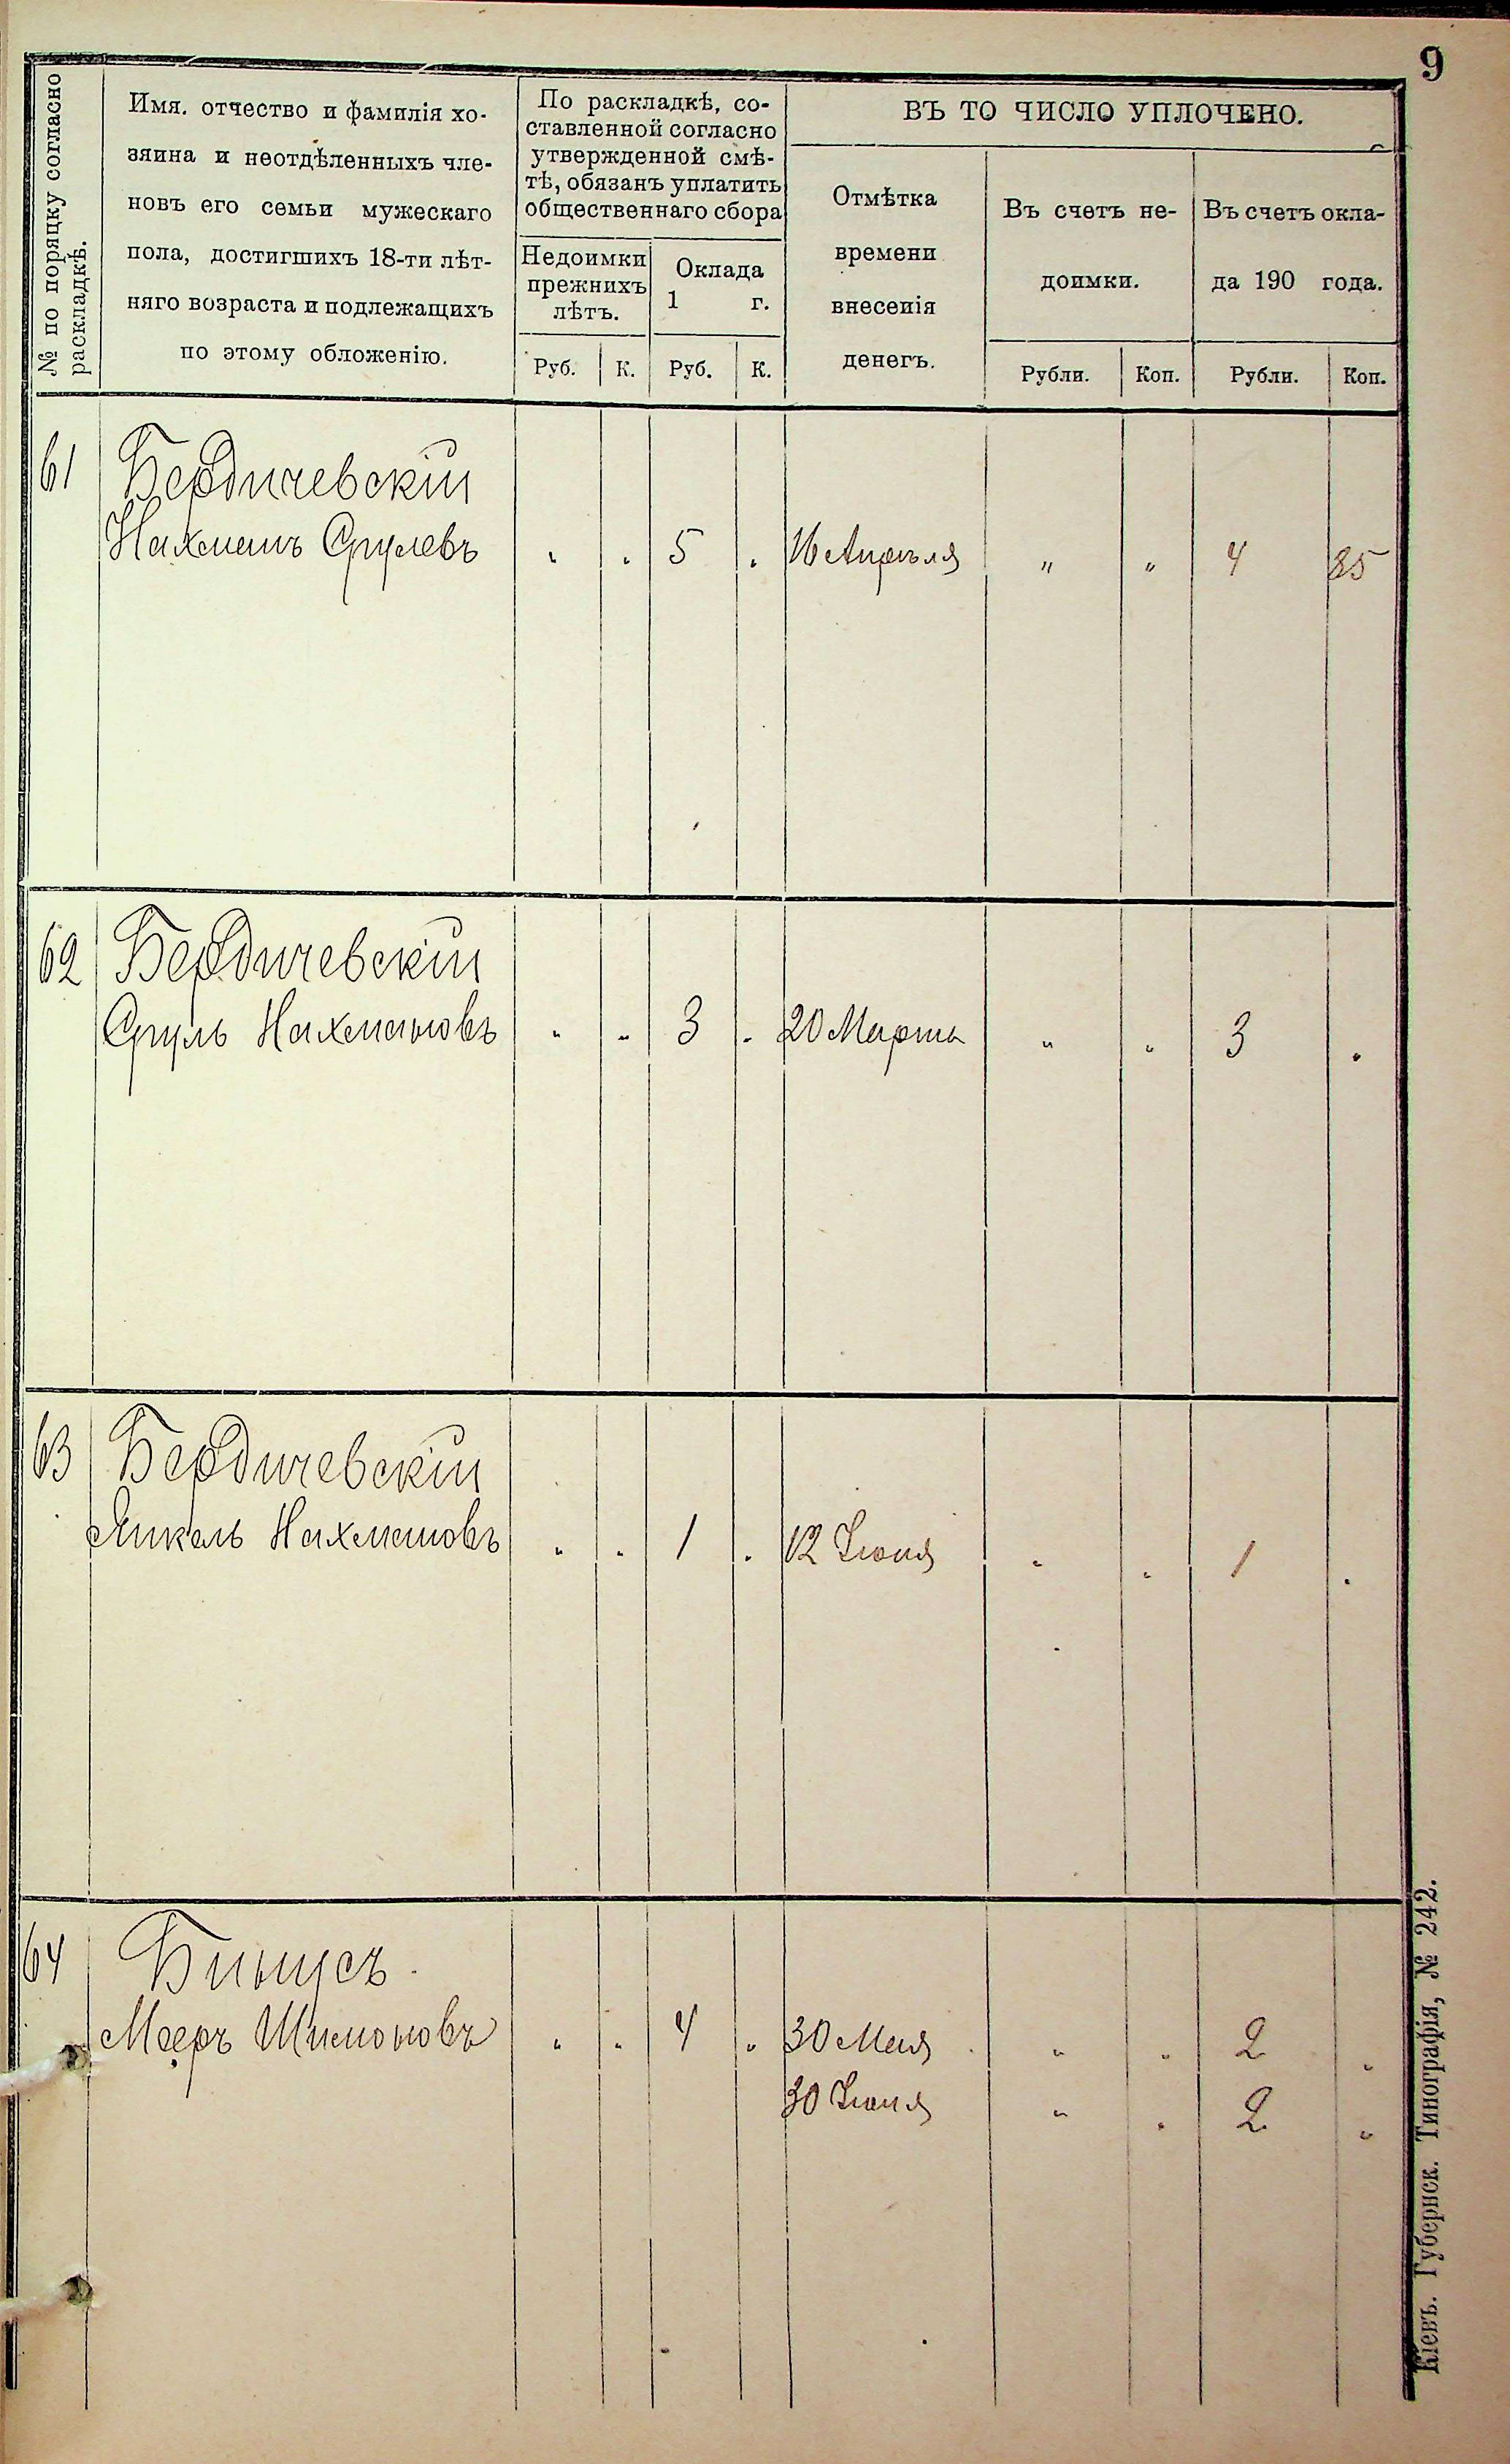 9
№ по поряцку согласно
раскладкѣ.
Имя. отчество и фамилія хо-
зяина и неотдѣленныхъ чле-
новъ его семьи мужескаго
пола, достигшихъ 18-ти лѣт-
няго возраста и подлежащихъ
по этому обложенію.
По раскладкѣ, со-
ставленной согласно
утвержденной смѣ-
тѣ, обязанъ уплатить
общественнаго сбора
Недоимки
прежнихъ
лѣтъ.
Оклада
1 г.
Руб. К. Руб. К.
ВЪ ТО ЧИСЛО УПЛОЧЕНО.
Отмѣтка
времени
внесенія
денегъ.
Въ счетъ не-
доимки.
Въ счетъ окла-
да 190 года.
Рубли. Коп. Рубли. Коп.
61 Бердичевскій
Нахманъ Срулевъ „ „ 5 „ 16 Апрѣля „ „ 4 85
62 Бердичевскій
Сруль Нахмановъ „ „ 3 „ 20 Марта „ „ 3 „
63 Бердичевскій
Янкель Нахмановъ „ „ 1 „ 12 Іюня „ „ 1 „
64
Мееръ Шимоновъ „ „ 4 „ 30 Мая „ „ 2 „
30 Іюня „ „ 2 „
Кіевъ. Губернск. Типографія, № 242.